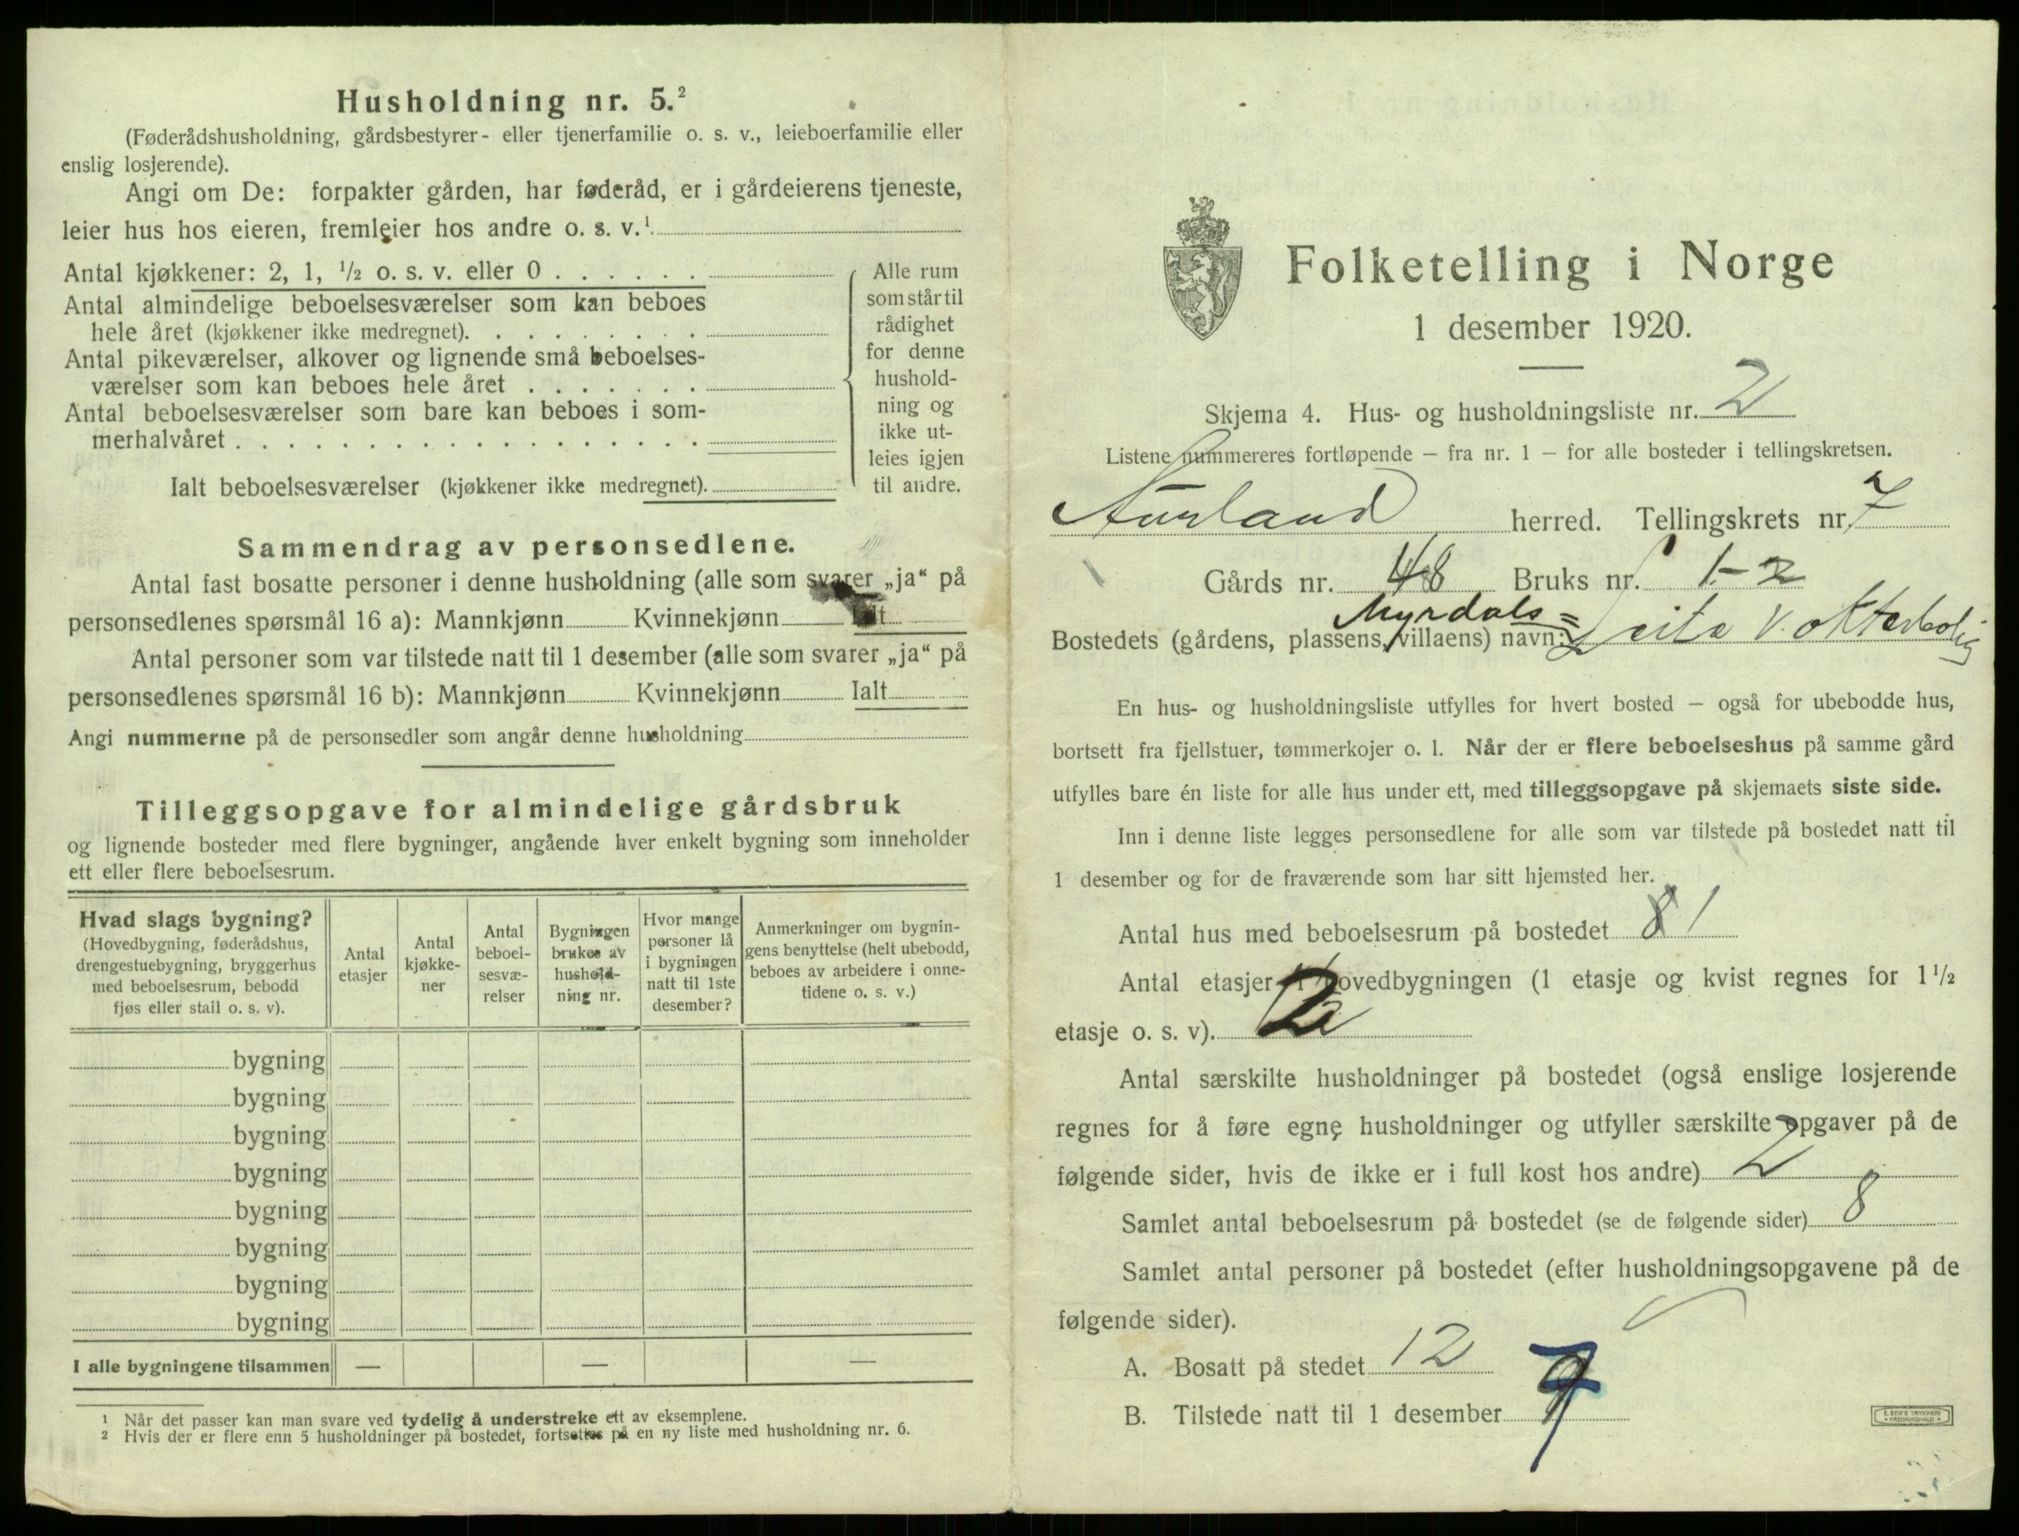 Husholdning nr. 5.²
(Føderådshusholdning, gårdsbestyrer- eller tjenerfamilie o. s. v., leieboerfamilie eller
enslig losjerende).
Angi om De: forpakter gården, har føderåd, er i gårdeierens tjeneste,
leier hus hos eieren, fremleier hos andre o. s. v.¹
Antal kjøkkener: 2, 1, ½ o. s. v. eller 0 . . . . . .
Antal almindelige beboelsesværelser som kan beboes
hele året (kjøkkener ikke medregnet). . . . . . . .
Antal pikeværelser, alkover og lignende små beboelses-
værelser som kan beboes hele året . . . . . . .
Antal beboelsesværelser som bare kan beboes i som-
merhalvåret . . . . . . . . . . . . . . . . . .
Ialt beboelsesværelser (kjøkkener ikke medregnet).
Alle rum
som står til
rådighet
for denne
hushold-
ning og
ikke ut-
leies igjen
til andre.
Sammendrag av personsedlene.
Antal fast bosatte personer i denne husholdning (alle som svarer „ja“ på
personsedlenes spørsmål 16 a): Mannkjønn Kvinnekjønn Ialt
Antal personer som var tilstede natt til 1 desember (alle som svarer „ja“ på
personsedlenes spørsmål 16 b): Mannkjønn Kvinnekjønn Ialt
Angi nummerne på de personsedler som angår denne husholdning
Tilleggsopgave for almindelige gårdsbruk
og lignende bosteder med flere bygninger, angående hver enkelt bygning som inneholder
ett eller flere beboelsesrum.
Hvad slags bygning?
(Hovedbygning, føderådshus,
drengestuebygning, bryggerhus
med beboelsesrum, bebodd
fjøs eller stall o. s. v).
Antal
etasjer
Antal
kjøkke-
ner
Antal
beboel-
sesvæ-
relser
Bygningen
brukes av
hushold-
ning nr.
Hvor mange
personer lå
i bygningen
natt til 1ste
desember?
Anmerkninger om bygnin-
gens benyttelse (helt ubebodd,
beboes av arbeidere i onne-
tidene o. s. v.)
bygning
bygning
bygning
bygning
bygning
bygning
bygning
bygning
I alle bygningene tilsammen — — —
¹ Når det passer kan man svare ved tydelig å understreke ett av eksemplene.
² Hvis der er flere enn 5 husholdninger på bostedet, fortsettes på en ny liste med husholdning nr. 6.
Folketelling i Norge
1 desember 1920.
Skjema 4. Hus- og husholdningsliste nr. 2
Listene nummereres fortløpende – fra nr. 1 – for alle bosteder i tellingskretsen.
Aurland herred. Tellingskrets nr. 7
Gårds nr. 48 Bruks nr. 1-2
Myrdals=
Bostedets (gårdens, plassens, villaens) navn: Leite Vokterbolig
En hus- og husholdningsliste utfylles for hvert bosted – også for ubebodde hus,
bortsett fra fjellstuer, tømmerkojer o. l. Når der er flere beboelseshus på samme gård
utfylles bare én liste for alle hus under ett, med tilleggsopgave på skjemaets siste side.
Inn i denne liste legges personsedlene for alle som var tilstede på bostedet natt til
1 desember og for de fraværende som har sitt hjemsted her.
Antal hus med beboelsesrum på bostedet 8 1
Antal etasjer i hovedbygningen (1 etasje og kvist regnes for 1½
etasje o. s. v). 2
Antal særskilte husholdninger på bostedet (også enslige losjerende
regnes for å føre egne husholdninger og utfyller særskilte opgaver på de
følgende sider, hvis de ikke er i full kost hos andre) 2
Samlet antal beboelsesrum på bostedet (se de følgende sider) 8
Samlet antal personer på bostedet (efter husholdningsopgavene på de
følgende sider).
A. Bosatt på stedet 12
B. Tilstede natt til 1 desember 7
E. SEM'S TRYKKERI
FREDRIKSHALD